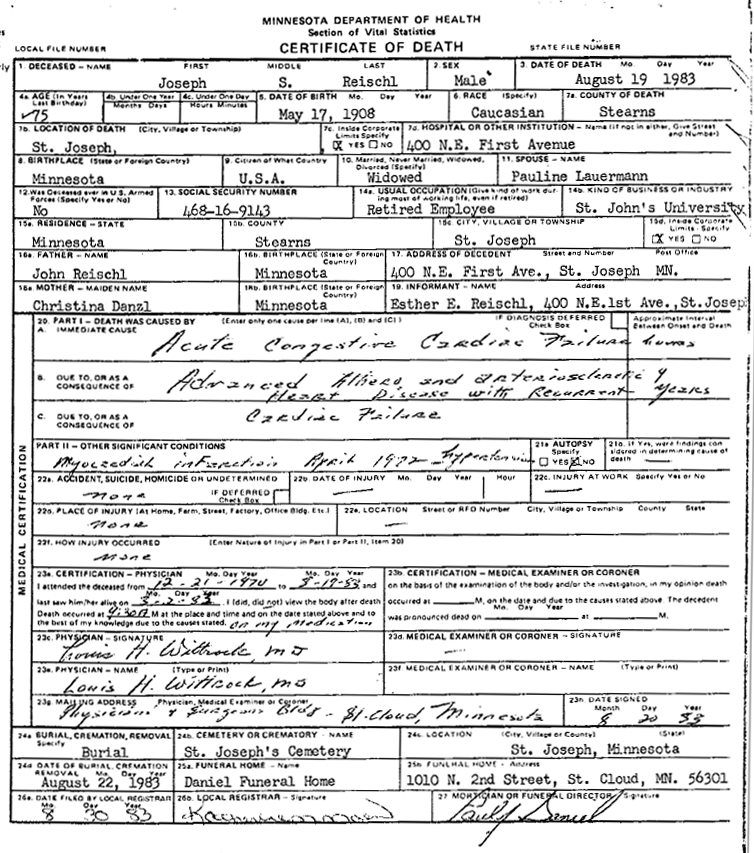 MINNESOTA DEPARTMENT OF HEALTH
Section of Vital Statistics
LOCAL FILE NUMBER CERTIFICATE OF DEATH STATE FILE NUMBER
1. DECEASED – NAME FIRST MIDDLE LAST 2. SEX 3. DATE OF DEATH Mo. Day Year
Joseph S. Reischl Male August 19 1983
4a. AGE (In Years Last Birthday) 4b. Under One Year Months Days 4c. Under One Day Hours Minutes 5. DATE OF BIRTH Mo. Day Year 6. RACE (Specify) 7a. COUNTY OF DEATH
75 May 17, 1908 Caucasian Stearns
7b. LOCATION OF DEATH (City, Village or Township) 7c. Inside Corporate Limits Specify 7d. HOSPITAL OR OTHER INSTITUTION – Name (If not in either, Give Street and Number)
St. Joseph, X YES NO 400 N.E. First Avenue
8. BIRTHPLACE (State or Foreign Country) 9. Citizen of What Country 10. Married, Never Married, Widowed, Divorced (Specify) 11. SPOUSE – NAME
Minnesota U.S.A. Widowed Pauline Lauermann
12. Was Deceased ever in U.S. Armed Forces (Specify Yes or No) 13. SOCIAL SECURITY NUMBER 14a. USUAL OCCUPATION (Give kind of work during most of working life, even if retired) 14b. KIND OF BUSINESS OR INDUSTRY
No 468-16-9143 Retired Employee St. John's University
15a. RESIDENCE – STATE 15b. COUNTY 15c. CITY, VILLAGE OR TOWNSHIP 15d. Inside Corporate Limits - Specify
Minnesota Stearns St. Joseph X YES NO
16a. FATHER – NAME 16b. BIRTHPLACE (State or Foreign Country) 17. ADDRESS OF DECEDENT Street and Number Post Office
John Reischl Minnesota 400 N.E. First Ave., St. Joseph MN.
18a. MOTHER – MAIDEN NAME 18b. BIRTHPLACE (State or Foreign Country) 19. INFORMANT – NAME Address
Christina Danzl Minnesota Esther E. Reischl, 400 N.E.1st Ave.,St.Josep
MEDICAL CERTIFICATION
20. PART I – DEATH WAS CAUSED BY (Enter only one cause per line (A), (B) and (C)) IF DIAGNOSIS DEFERRED Check Box Approximate Interval Between Onset and Death
A. IMMEDIATE CAUSE Acute Congestive Cardiac Failure hours
B. DUE TO, OR AS A CONSEQUENCE OF Advanced Athero and arteriosclerotic 9
Heart Disease with Recurrent years
C. DUE TO, OR AS A CONSEQUENCE OF Cardiac Failure
PART II – OTHER SIGNIFICANT CONDITIONS 21a. AUTOPSY Specify YES X NO 21b. If Yes, were findings considered in determining cause of death —
infarction April 1972 Hypertension
22a. ACCIDENT, SUICIDE, HOMICIDE OR UNDETERMINED IF DEFERRED Check Box 22b. DATE OF INJURY Mo. Day Year Hour 22c. INJURY AT WORK Specify Yes or No
none — —
22d. PLACE OF INJURY (At Home, Farm, Street, Factory, Office Bldg. Etc.) 22e. LOCATION Street or RFD Number City, Village or Township County State
none —
22f. HOW INJURY OCCURRED (Enter Nature of Injury in Part I or Part II, Item 20)
none
23a. CERTIFICATION – PHYSICIAN Mo. Day Year Mo. Day Year 23b. CERTIFICATION – MEDICAL EXAMINER OR CORONER
I attended the deceased from 12-21-1970 to 8-19-83 and on the basis of the examination of the body and/or the investigation, in my opinion death
last saw him/her alive on 3-2-83. I (did, did not) view the body after death occurred at M, on the date and due to the causes stated above. The decedent
Death occurred at M at the place and time and on the date stated above and to was pronounced dead on at M.
the best of my knowledge due to the causes stated. on my medication
23c. PHYSICIAN – SIGNATURE 23d. MEDICAL EXAMINER OR CORONER – SIGNATURE
Louis H. Wittrock, MD —
23e. PHYSICIAN – NAME (Type or Print) 23f. MEDICAL EXAMINER OR CORONER – NAME (Type or Print)
Louis H. Wittrock, MD
23g. MAILING ADDRESS Physician, Medical Examiner or Coroner 23h. DATE SIGNED Month Day Year
Physicians & Surgeons Bldg - St. Cloud, Minnesota 8 20 83
24a. BURIAL, CREMATION, REMOVAL Specify 24b. CEMETERY OR CREMATORY – NAME 24c. LOCATION (City, Village or County) (State)
Burial St. Joseph's Cemetery St. Joseph, Minnesota
24d. DATE OF BURIAL, CREMATION REMOVAL Mo. Day Year 25a. FUNERAL HOME – Name 25b. FUNERAL HOME – Address
August 22, 1983 Daniel Funeral Home 1010 N. 2nd Street, St. Cloud, MN. 56301
26a. DATE FILED BY LOCAL REGISTRAR Mo. Day Year 26b. LOCAL REGISTRAR – Signature 27. MORTICIAN OR FUNERAL DIRECTOR – Signature
8 30 83 Paul J Daniel